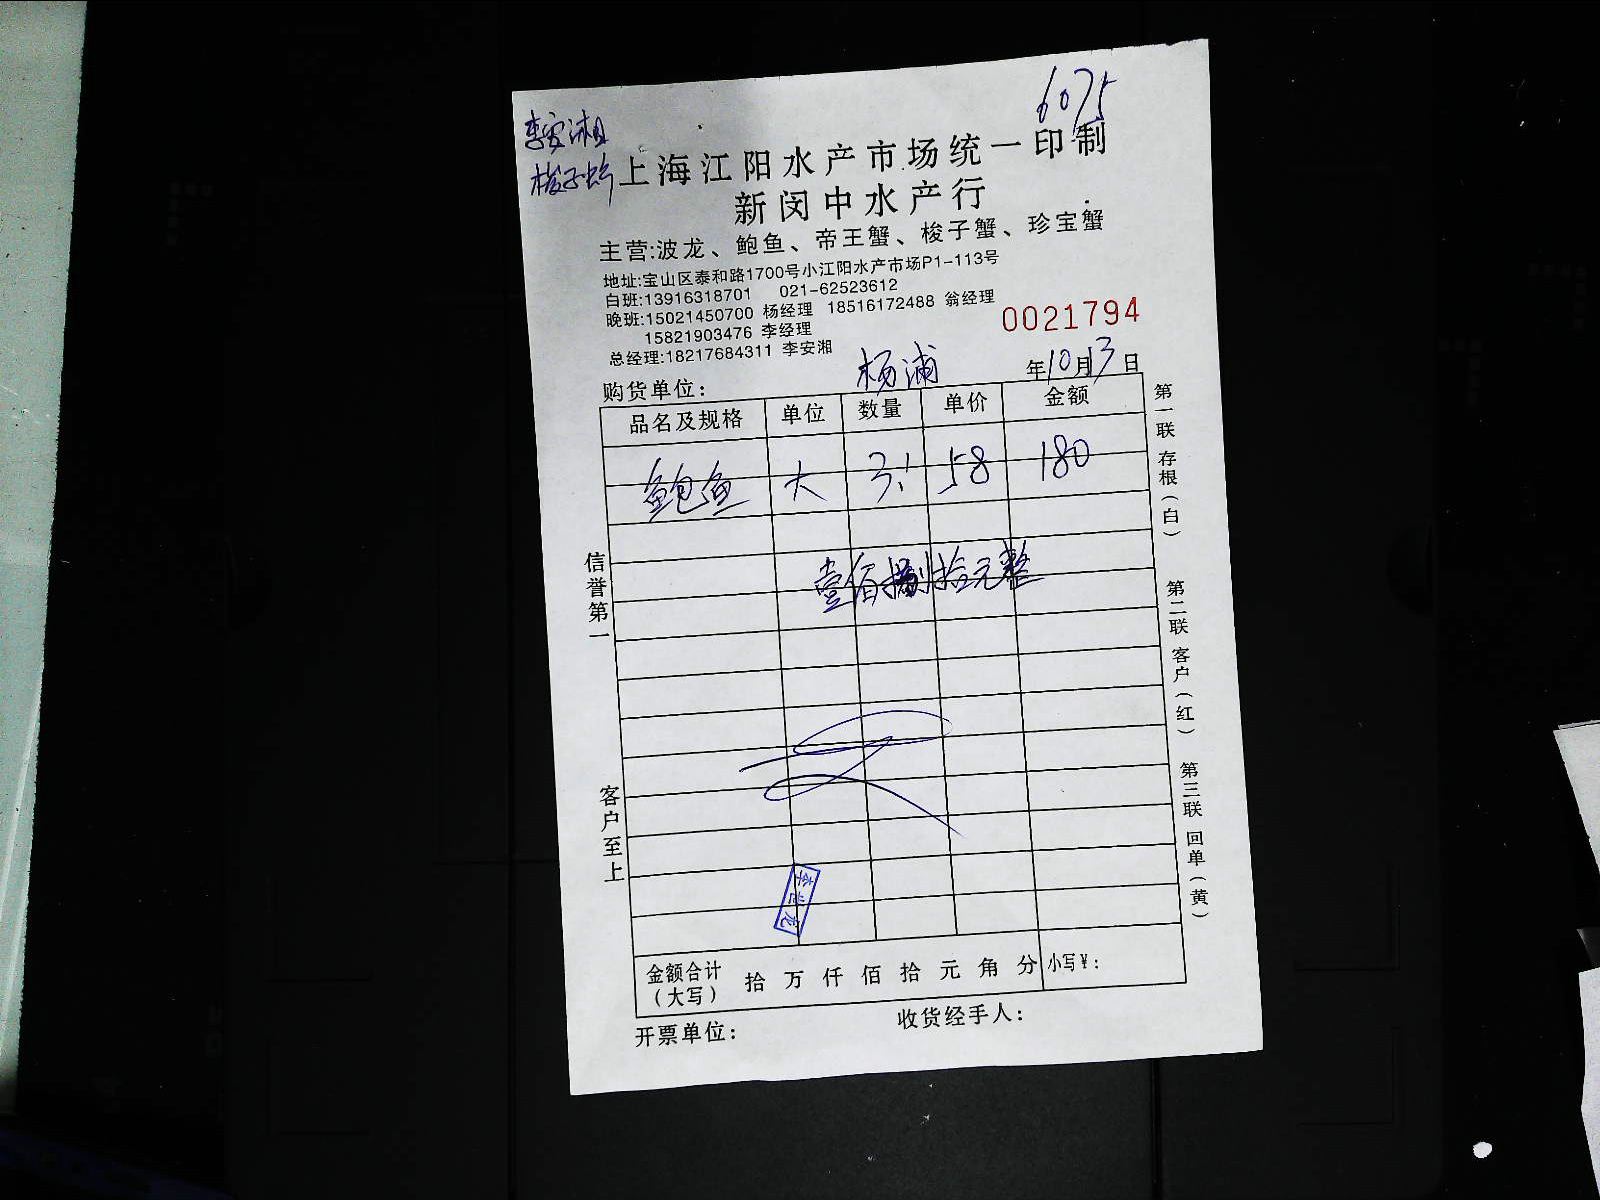 6075
李安湘
梭子蟹
上海江阳水产市场统一印制
新闵中水产行
主营:波龙、鲍鱼、帝王蟹、梭子蟹、珍宝蟹
地址:宝山区泰和路1700号小江阳水产市场P1-113号
白班:13916318701 021-62523612
晚班:15021450700 杨经理 18516172488 翁经理
15821903476 李经理
总经理:18217684311 李安湘
0021794
购货单位: 杨浦 年10月13日
品名及规格 单位 数量 单价 金额
鲍鱼 大 3.1 58 180
壹佰捌拾元整
信誉第一
客户至上
李兰龙
第一联 存根(白)
第二联 客户(红)
第三联 回单(黄)
金额合计(大写) 拾 万 仟 佰 拾 元 角 分 小写¥:
开票单位: 收货经手人: